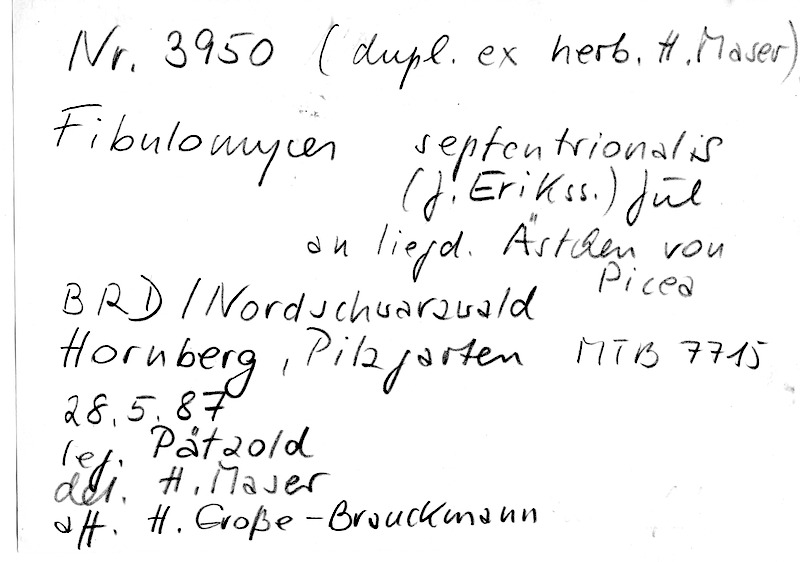 Nr. 3950 (dupl. ex herb. H. Maser)
Fibulomyces septentrionalis
(J. Erikss.) Jül
an liegd. Ästchen von
Picea
BRD / Nordschwarzwald
Hornberg, Pilzgarten MTB 7715
28.5.87
leg. Pätzold
det. H. Maser
aff. H. Große-Brauckmann